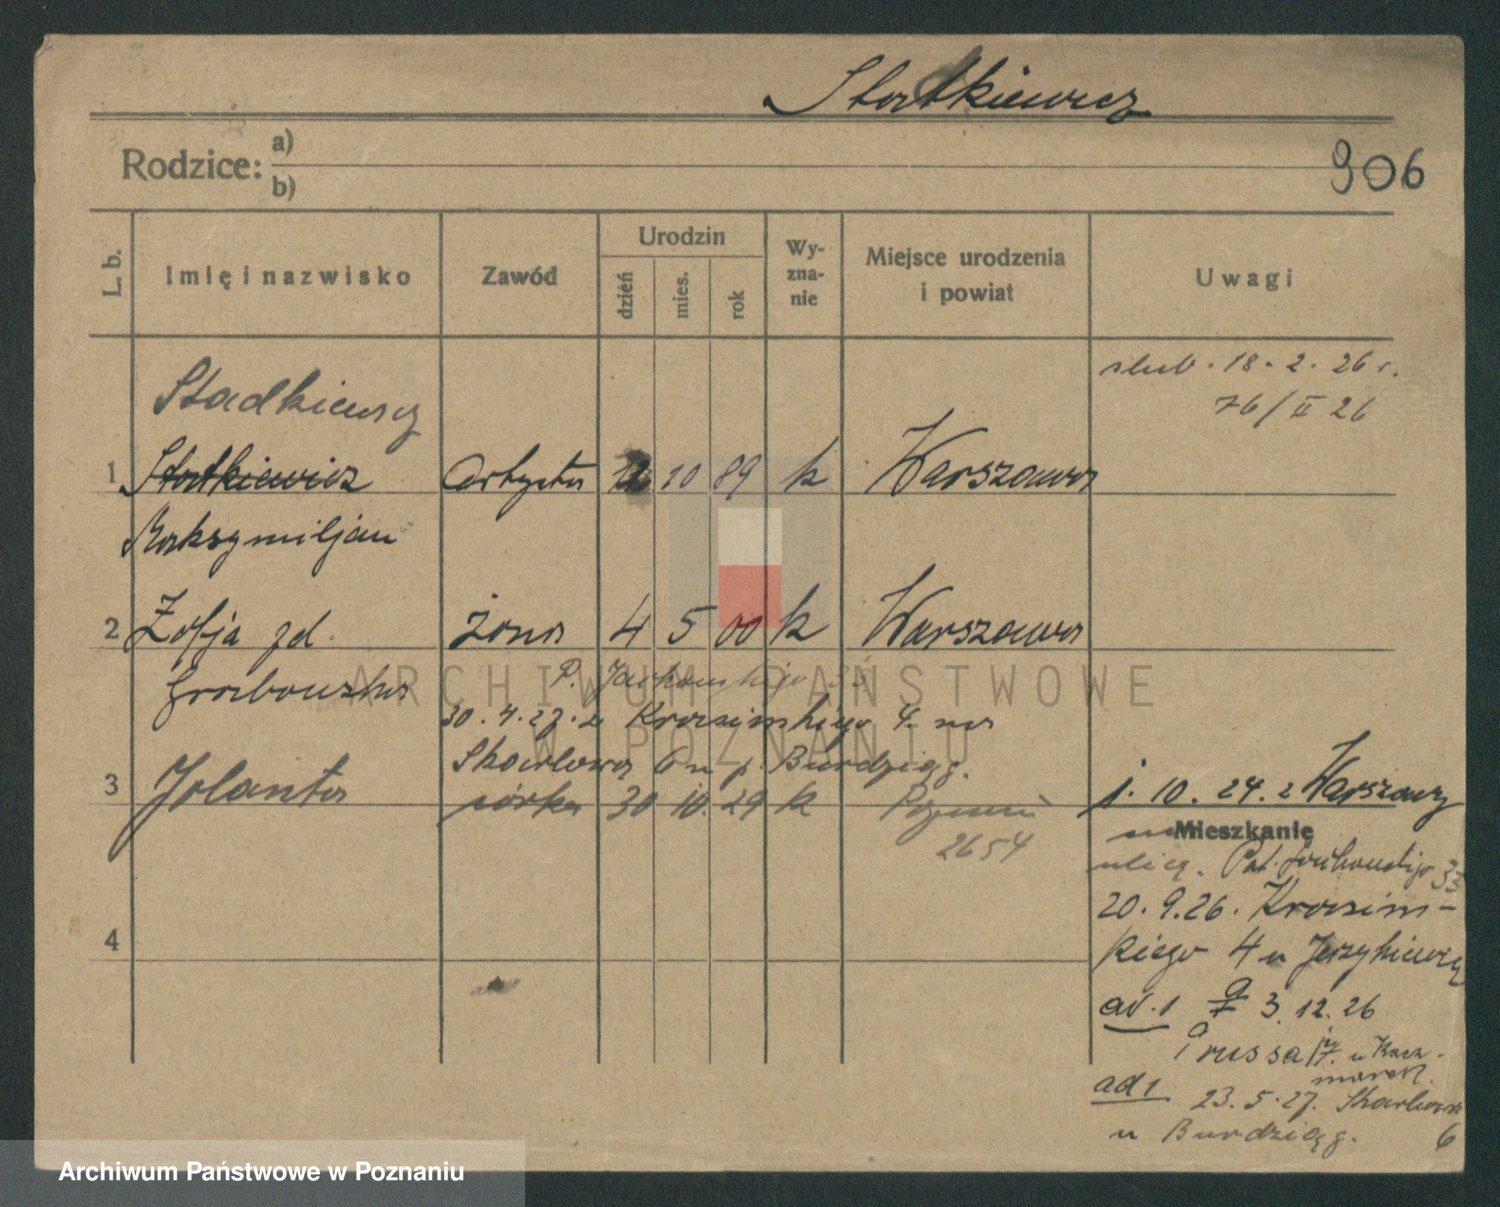 Statkiewicz
Rodzice: a)
b)
906
L. b.
Imię i nazwisko
Zawód
Urodzin
dzień
mies.
rok
Wy-
zna-
nie
Miejsce urodzenia
i powiat
Uwagi
ślub. 18. 2. 26 r.
76/II 26
Stadkiewicz
1 Statkiewicz artysta 10 89 k Warszawa
Maksymiljan
2 Zofja żona 4 5 00 k Warszawa
Grabowska
P. Jackowskiego 33
30. 4. 27. z Krasińskiego 4. na
Skarbowa 6 u p. Burdziąg.
3 Jolanta córka 30 10. 29 k Poznań
2654
j. 10. 24. z Warszawy
Mieszkanie
ulicą. Pat. Jackowskiego 33
20. 9. 26. Krasiń-
skiego 4 u Jerzykiewicz
ad. 1 3. 12. 26
Prussa u Kacz-
marek.
ad 1 23. 5. 27. Skarbowa
u Burdziąg. 6
4
ARCHIWUM PAŃSTWOWE
W POZNANIU
Archiwum Państwowe w Poznaniu